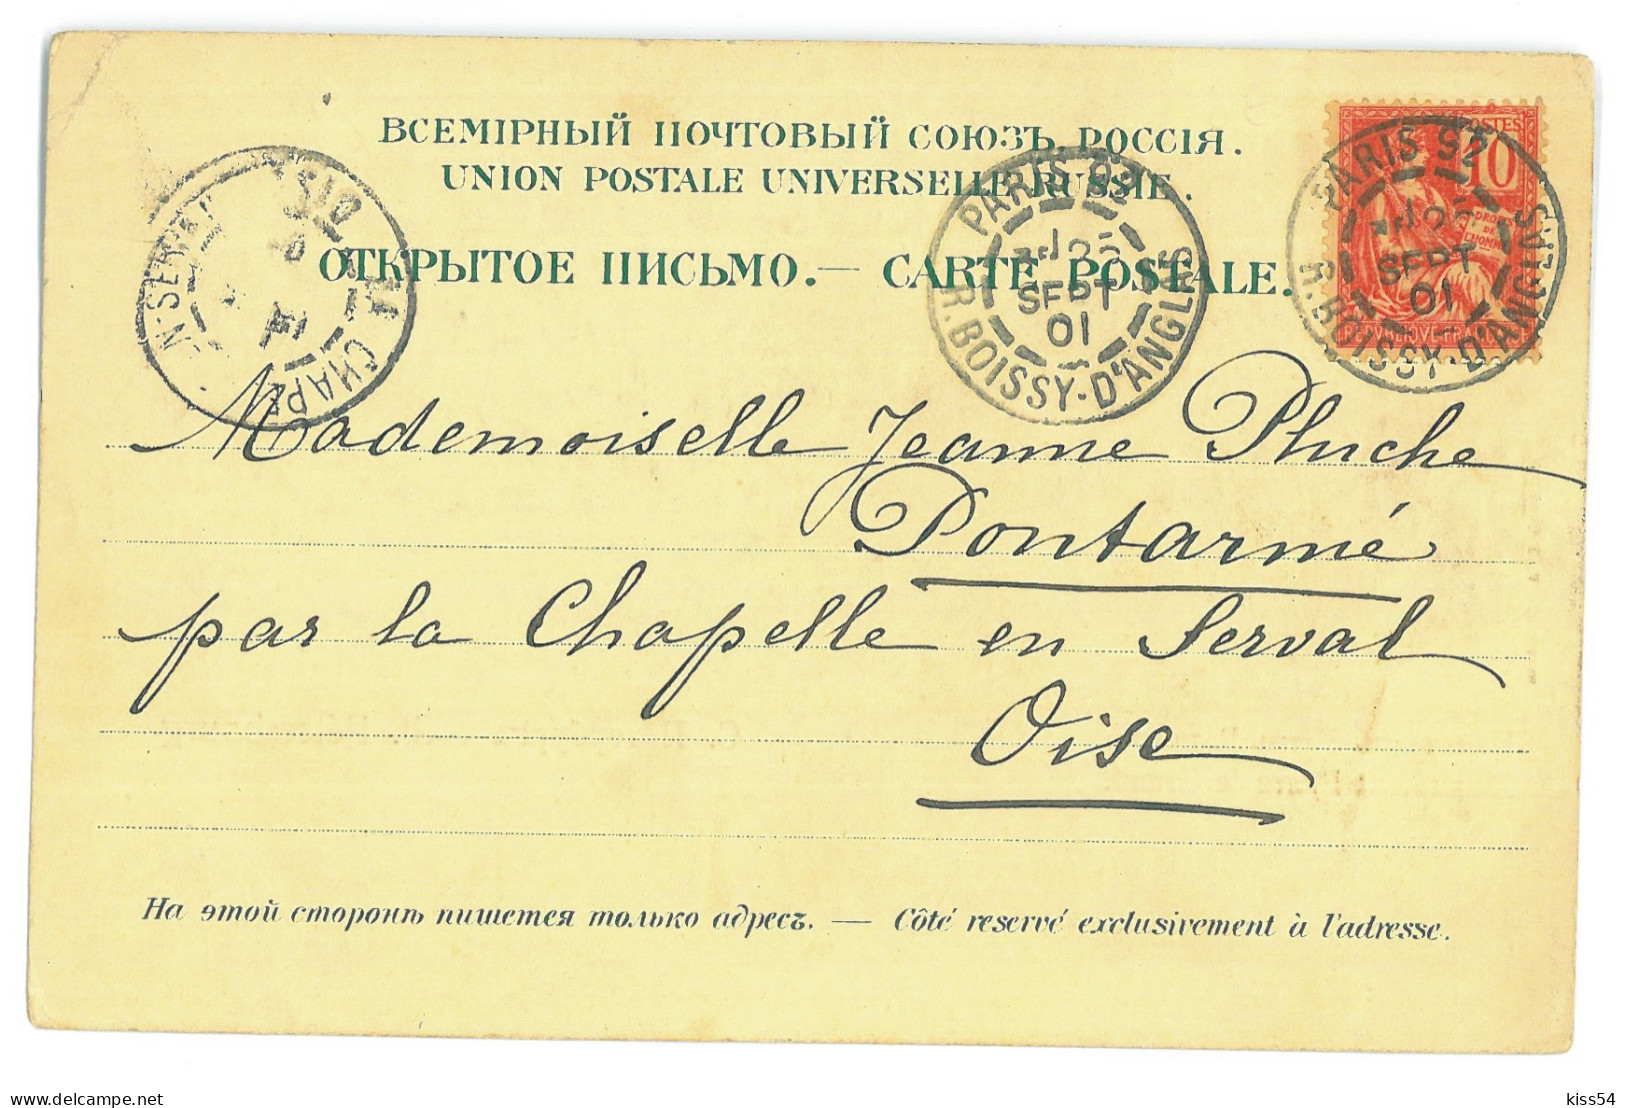 ВСЕМІРНЫЙ ПОЧТОВЫЙ СОЮЗЪ. РОССІЯ.
UNION POSTALE UNIVERSELLE RUSSIE.
ОТКРЫТОЕ ПИСЬМО. — CARTE POSTALE.
PARIS 92
25
SEPT
01
R. BOISSY-D'ANGLAS
PARIS 92
25
SEPT
01
R. BOISSY-D'ANGLAS
POSTES
10
DROITS
DE
L'HOMME
LA CHAPELLE-EN-SERVAL
OISE
Mademoiselle Jeanne Pluche
Pontarmé
par la Chapelle en Serval
Oise
На этой сторонѣ пишется только адресъ. — Côté reservé exclusivement à l'adresse.
kiss54